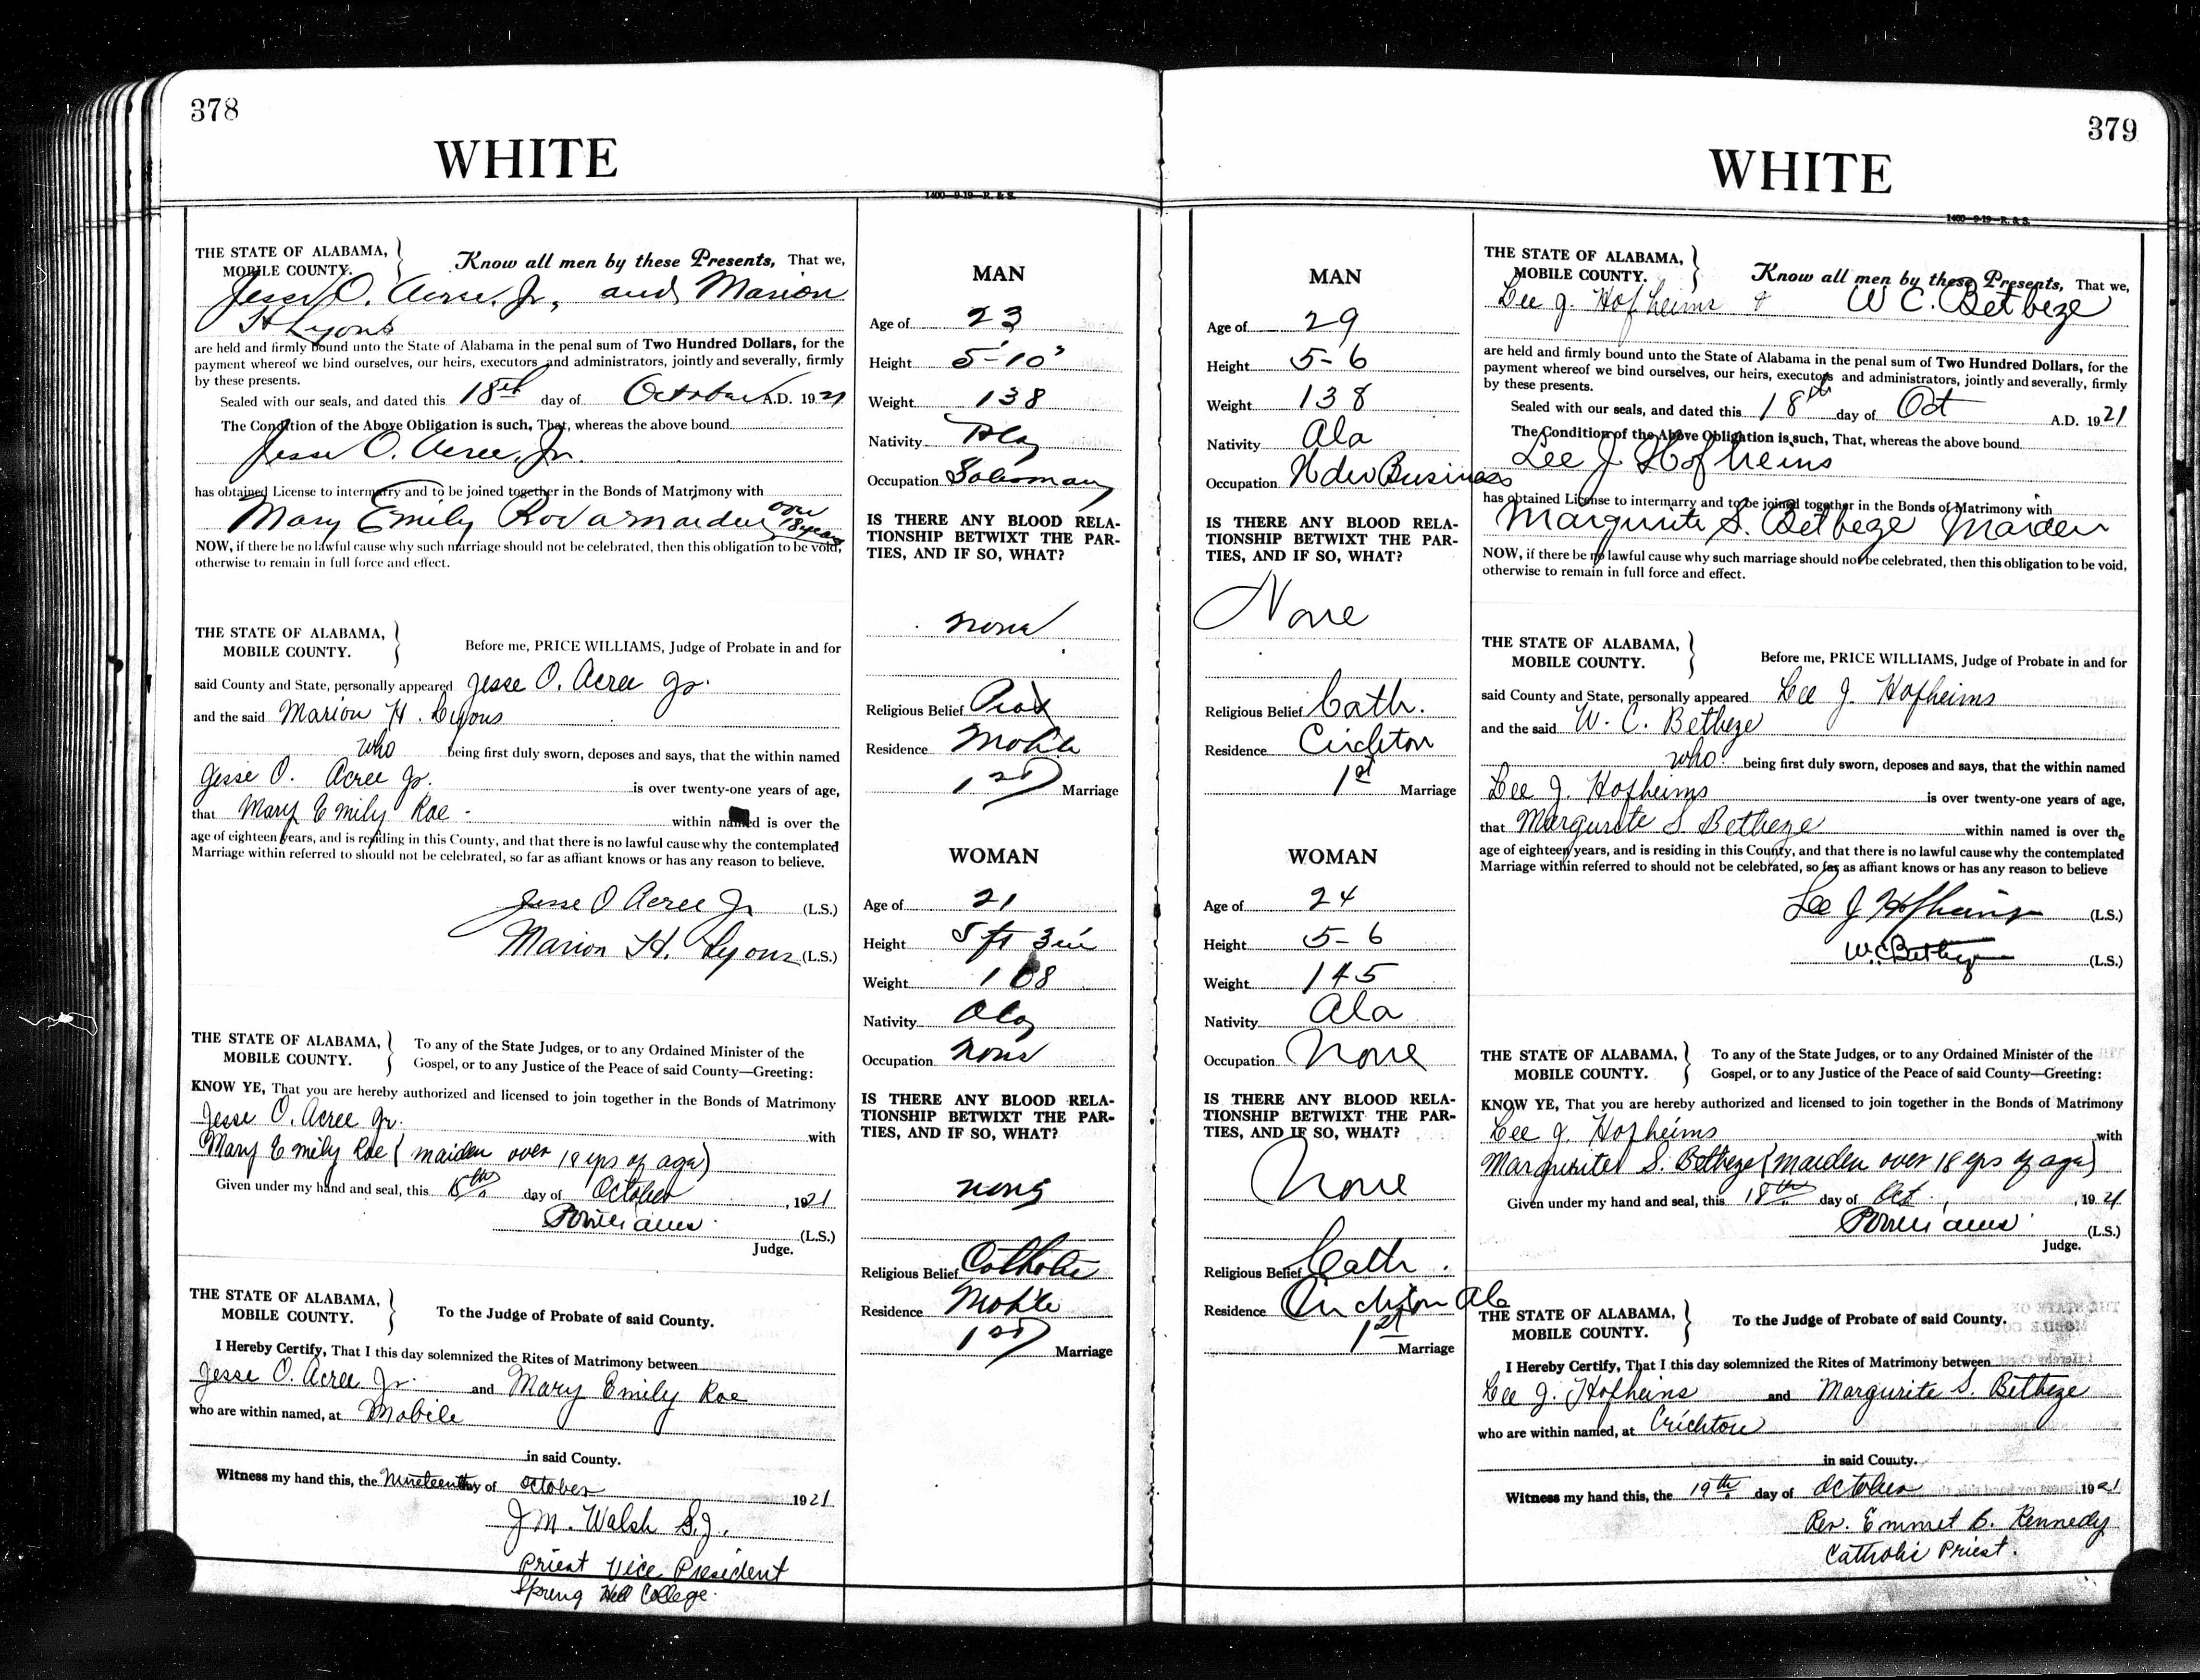 378
WHITE
1400—9-19—R. & S.
THE STATE OF ALABAMA,
MOBILE COUNTY.
Know all men by these Presents, That we,
Jesse O. Acree, Jr., and Marion
H Lyons
are held and firmly bound unto the State of Alabama in the penal sum of Two Hundred Dollars, for the
payment whereof we bind ourselves, our heirs, executors and administrators, jointly and severally, firmly
by these presents.
Sealed with our seals, and dated this 18th day of October A.D. 1921
The Condition of the Above Obligation is such, That, whereas the above bound
Jesse O. Acree, Jr.
has obtained License to intermarry and to be joined together in the Bonds of Matrimony with
Mary Emily Roe a maiden over 18 years
NOW, if there be no lawful cause why such marriage should not be celebrated, then this obligation to be void,
otherwise to remain in full force and effect.
THE STATE OF ALABAMA,
MOBILE COUNTY.
Before me, PRICE WILLIAMS, Judge of Probate in and for
said County and State, personally appeared Jesse O. Acree Jr.
and the said Marion H. Lyons
who being first duly sworn, deposes and says, that the within named
Jesse O. Acree Jr. is over twenty-one years of age,
that Mary Emily Roe - within named is over the
age of eighteen years, and is residing in this County, and that there is no lawful cause why the contemplated
Marriage within referred to should not be celebrated, so far as affiant knows or has any reason to believe.
Jesse O Acree Jr (L.S.)
Marion H. Lyons (L.S.)
THE STATE OF ALABAMA,
MOBILE COUNTY.
To any of the State Judges, or to any Ordained Minister of the
Gospel, or to any Justice of the Peace of said County—Greeting:
KNOW YE, That you are hereby authorized and licensed to join together in the Bonds of Matrimony
Jesse O. Acree Jr. with
Mary Emily Roe (maiden over 18 yrs of age)
Given under my hand and seal, this 18th day of October, 1921
PWilliams (L.S.)
Judge.
THE STATE OF ALABAMA,
MOBILE COUNTY.
To the Judge of Probate of said County.
I Hereby Certify, That I this day solemnized the Rites of Matrimony between
Jesse O. Acree Jr. and Mary Emily Roe
who are within named, at Mobile
in said County.
Witness my hand this, the Nineteenth day of October 1921
J.M. Walsh S.J.
Priest Vice President
Spring Hill College.
MAN
Age of 23
Height 5-10"
Weight 138
Nativity Ala
Occupation Salesman
IS THERE ANY BLOOD RELA-
TIONSHIP BETWIXT THE PAR-
TIES, AND IF SO, WHAT?
none
Religious Belief Prot
Residence Mobile
1st Marriage
WOMAN
Age of 21
Height 5 ft 3in
Weight 108
Nativity Ala
Occupation none
IS THERE ANY BLOOD RELA-
TIONSHIP BETWIXT THE PAR-
TIES, AND IF SO, WHAT?
none
Religious Belief Catholic
Residence Mobile
1st Marriage
379
WHITE
1400—9-19—R. & S.
MAN
Age of 29
Height 5-6
Weight 138
Nativity Ala
Occupation Business
IS THERE ANY BLOOD RELA-
TIONSHIP BETWIXT THE PAR-
TIES, AND IF SO, WHAT?
None
Religious Belief Cath.
Residence Crichton
1st Marriage
WOMAN
Age of 24
Height 5-6
Weight 145
Nativity Ala
Occupation None
IS THERE ANY BLOOD RELA-
TIONSHIP BETWIXT THE PAR-
TIES, AND IF SO, WHAT?
None
Religious Belief Cath.
Residence Crichton Ala
1st Marriage
THE STATE OF ALABAMA,
MOBILE COUNTY.
Know all men by these Presents, That we,
Lee J. Hofheims & W C. Betbeze
are held and firmly bound unto the State of Alabama in the penal sum of Two Hundred Dollars, for the
payment whereof we bind ourselves, our heirs, executors and administrators, jointly and severally, firmly
by these presents.
Sealed with our seals, and dated this 18th day of Oct A.D. 1921
The Condition of the Above Obligation is such, That, whereas the above bound
Lee J Hofheins
has obtained License to intermarry and to be joined together in the Bonds of Matrimony with
Margurite S. Betbeze Maiden
NOW, if there be no lawful cause why such marriage should not be celebrated, then this obligation to be void,
otherwise to remain in full force and effect.
THE STATE OF ALABAMA,
MOBILE COUNTY.
Before me, PRICE WILLIAMS, Judge of Probate in and for
said County and State, personally appeared Lee J Hofheims
and the said W. C. Betbeze
who being first duly sworn, deposes and says, that the within named
Lee J. Hofheims is over twenty-one years of age,
that Margurite S Betbeze within named is over the
age of eighteen years, and is residing in this County, and that there is no lawful cause why the contemplated
Marriage within referred to should not be celebrated, so far as affiant knows or has any reason to believe
Lee J Hofheins (L.S.)
W.C. Betbeze (L.S.)
THE STATE OF ALABAMA,
MOBILE COUNTY.
To any of the State Judges, or to any Ordained Minister of the
Gospel, or to any Justice of the Peace of said County—Greeting:
KNOW YE, That you are hereby authorized and licensed to join together in the Bonds of Matrimony
Lee J. Hofheims with
Margurites S. Betbeze (maiden over 18 yrs of age)
Given under my hand and seal, this 18th day of Oct., 1921
PWilliams (L.S.)
Judge.
THE STATE OF ALABAMA,
MOBILE COUNTY.
To the Judge of Probate of said County.
I Hereby Certify, That I this day solemnized the Rites of Matrimony between
Lee J. Hofheins and Margurite S. Betbeze
who are within named, at Crichton
in said County.
Witness my hand this, the 19th day of October 1921
Rev. Emmet B. Kennedy
Catholic Priest.